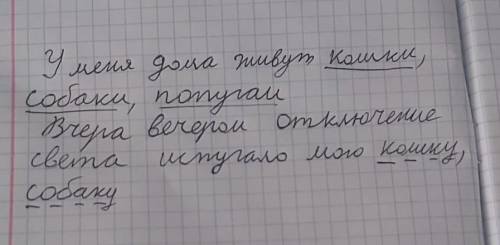 У меня дома живут кошки,
собаки, попугаи
Вчера вечером отключение
света испугало мою кошку,
собаку